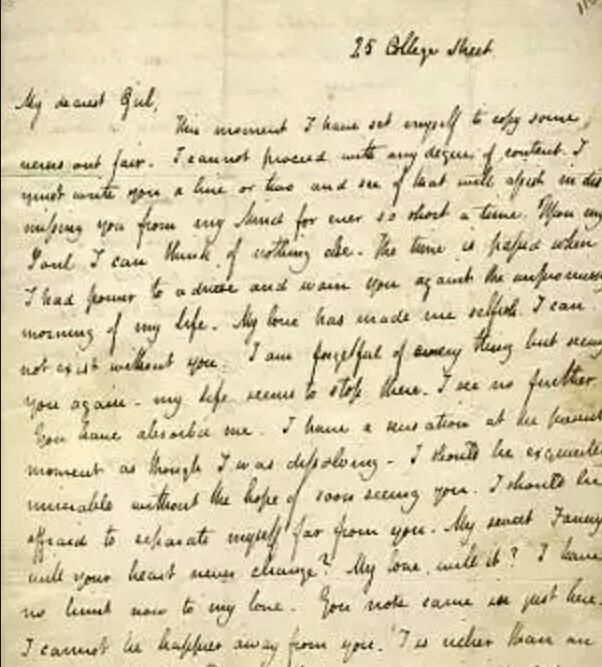 25 College Street.
My dearest Girl,
This moment I have set myself to copy some
verses out fair. I cannot proceed with any degree of content. I
must write you a line or two and see if that will assist in dis
missing you from my Mind for ever so short a time. Upon my
Soul I can think of nothing else - The time is passed when
I had power to advise and warn you against the unpromising
morning of my Life - My love has made me selfish. I can
not exist without you. I am forgetful of every thing but seeing
you again - my Life seems to stop there - I see no further.
You have absorb'd me. I have a sensation at the present
moment as though I was dissolving - I should be exquisitely
miserable without the hope of soon seeing you. I should be
affraid to separate myself far from you. My sweet Fanny
will your heart never change? My love, will it? I have
no limit now to my love - You note came in just here.
I cannot be happier away from you. 'T is richer than an